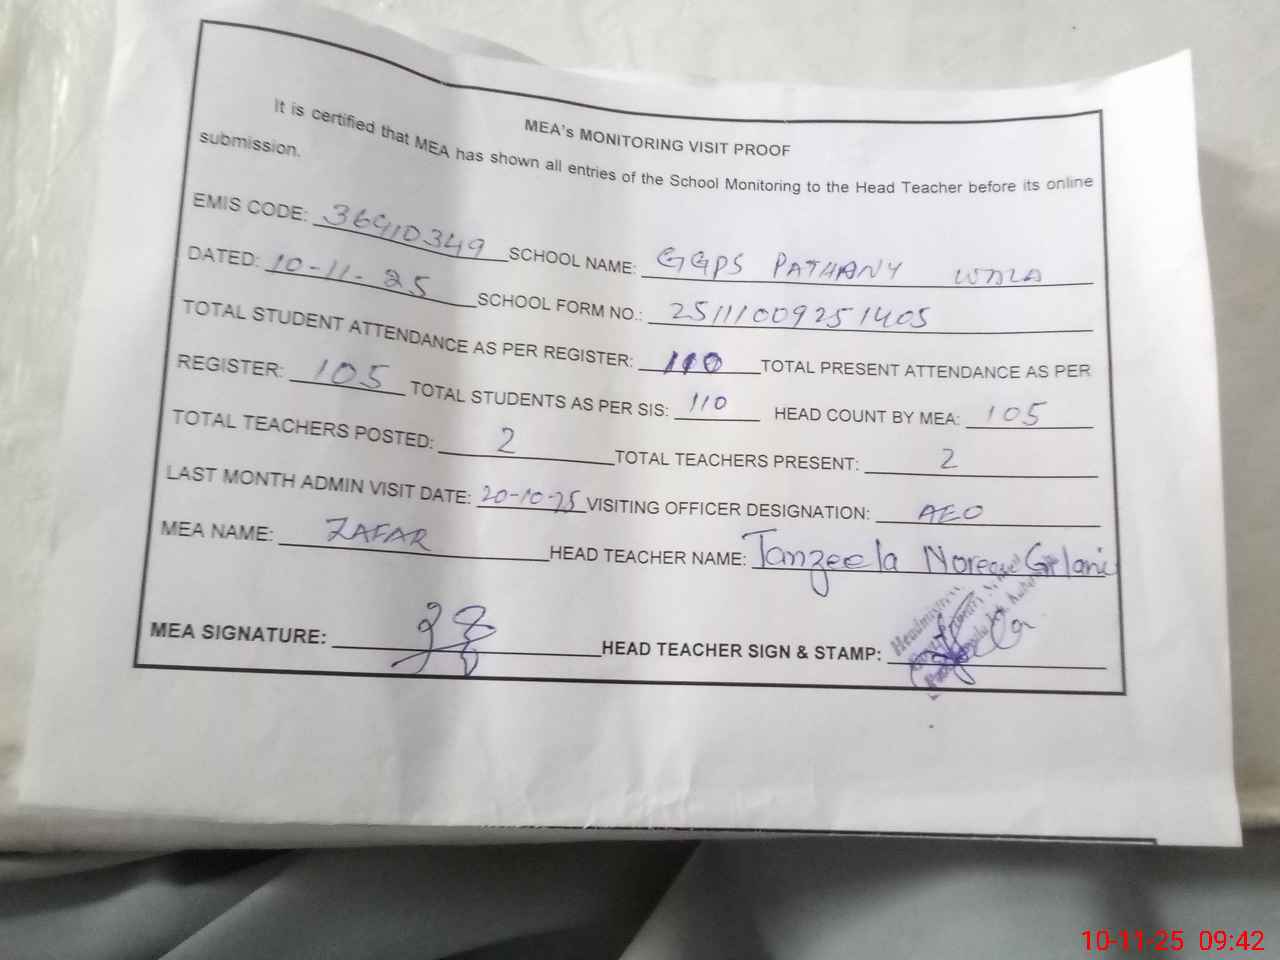 MEA's MONITORING VISIT PROOF
It is certified that MEA has shown all entries of the School Monitoring to the Head Teacher before its online
submission.
EMIS CODE: 36910349 SCHOOL NAME: GGPS PATHANY WALA
DATED: 10-11-25 SCHOOL FORM NO.: 25111009251405
TOTAL STUDENT ATTENDANCE AS PER REGISTER: 110 TOTAL PRESENT ATTENDANCE AS PER
REGISTER: 105 TOTAL STUDENTS AS PER SIS: 110 HEAD COUNT BY MEA: 105
TOTAL TEACHERS POSTED: 2 TOTAL TEACHERS PRESENT: 2
LAST MONTH ADMIN VISIT DATE: 20-10-25 VISITING OFFICER DESIGNATION: AEO
MEA NAME: ZAFAR HEAD TEACHER NAME: Tanzeela Noreen Gilani
MEA SIGNATURE: HEAD TEACHER SIGN & STAMP:
10-11-25 09:42